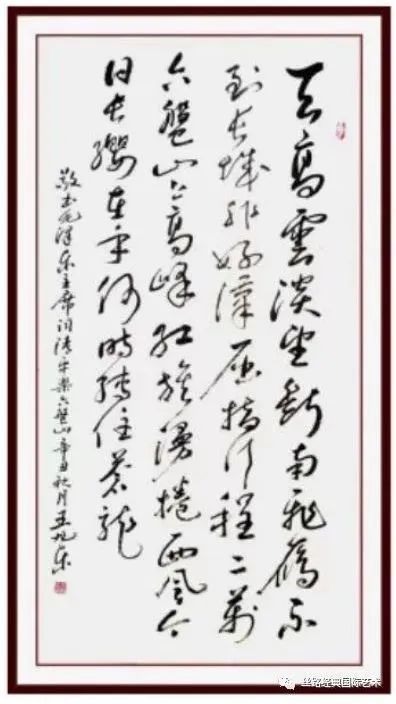 天高雲淡望斷南飛雁不
到長城非好漢屈指行程二萬
六盤山上高峰紅旗漫捲西風今
日長纓在手何時縛住蒼龍
敬書毛澤东主席詞清平樂六盤山辛丑秋月王旭东
丝路经典国际艺术